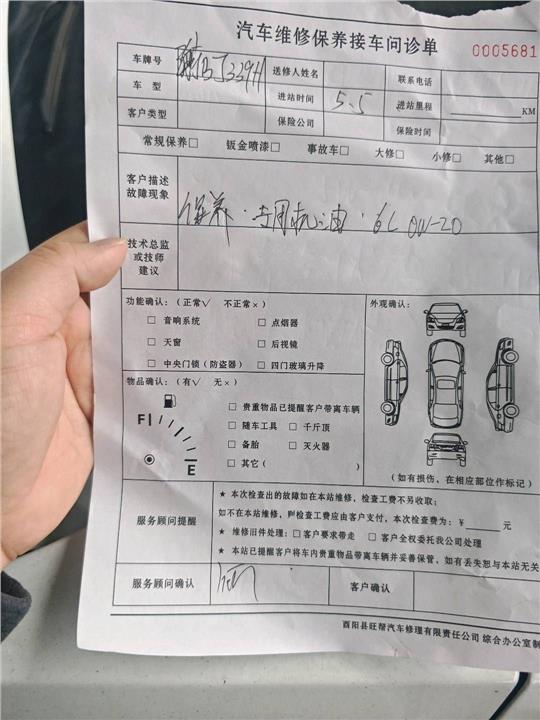 汽车维修保养接车问诊单
0005681
车牌号 送修人姓名 联系电话
车型 进站时间 5.5 进站里程 KM
客户类型 保险公司 保险时间
常规保养□ 钣金喷漆□ 事故车□ 大修□ 小修□ 其他□
客户描述
故障现象
保养·专用机油·6L 0W-20
技术总监
或技师
建议
功能确认:(正常√ 不正常×) 外观确认:
□ 音响系统 □ 点烟器
□ 天窗 □ 后视镜
□ 中央门锁(防盗器) □ 四门玻璃升降
物品确认:(有√ 无×)
□ 贵重物品已提醒客户带离车辆
F □ 随车工具 □ 千斤顶
□ 备胎 □ 灭火器
E □ 其它( )
(如有损伤,在相应部位作标记)
服务顾问提醒
★ 本次检查出的故障如在本站维修,检查工费不另收取;
如不在本站维修,则检查工费应由客户支付,本次检查费为:¥ 元
★ 维修旧件处理:□ 客户要求带走 □ 客户全权委托我公司处理
★ 本站已提醒客户将车内贵重物品带离车辆并妥善保管,如有丢失恕与本站无关
服务顾问确认 客户确认
酉阳县旺帮汽车修理有限责任公司 综合办公室制